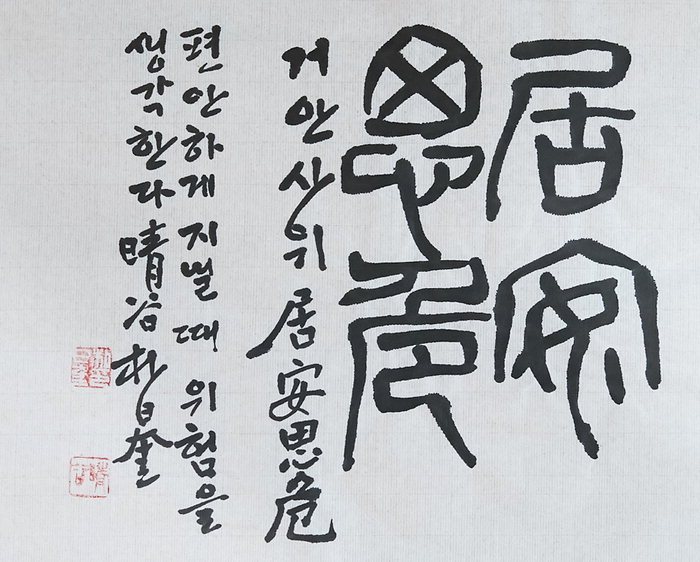 居安
思危
거안사위 居安思危
편안하게 지낼 때 위험을
생각한다 晴谷 朴日奎